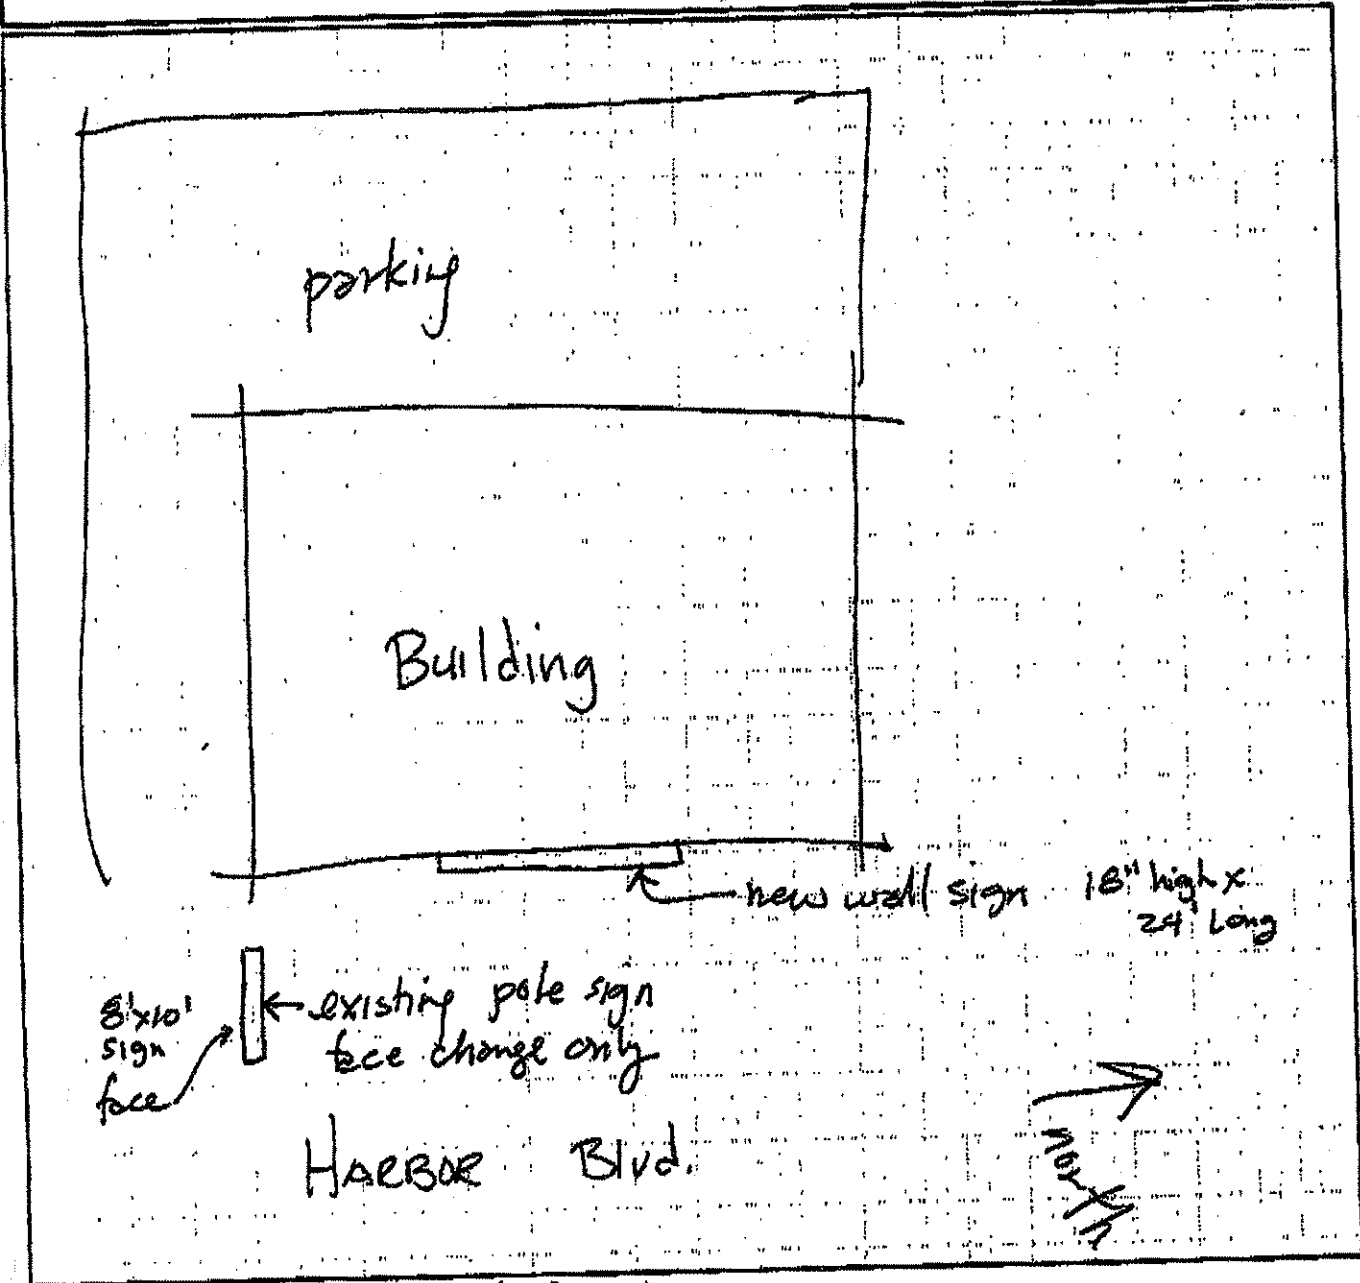 parking
Building
new wall sign 18" high x
24' Long
8'x10'
sign
face
existing pole sign
face change only
HARBOR Blvd.
north